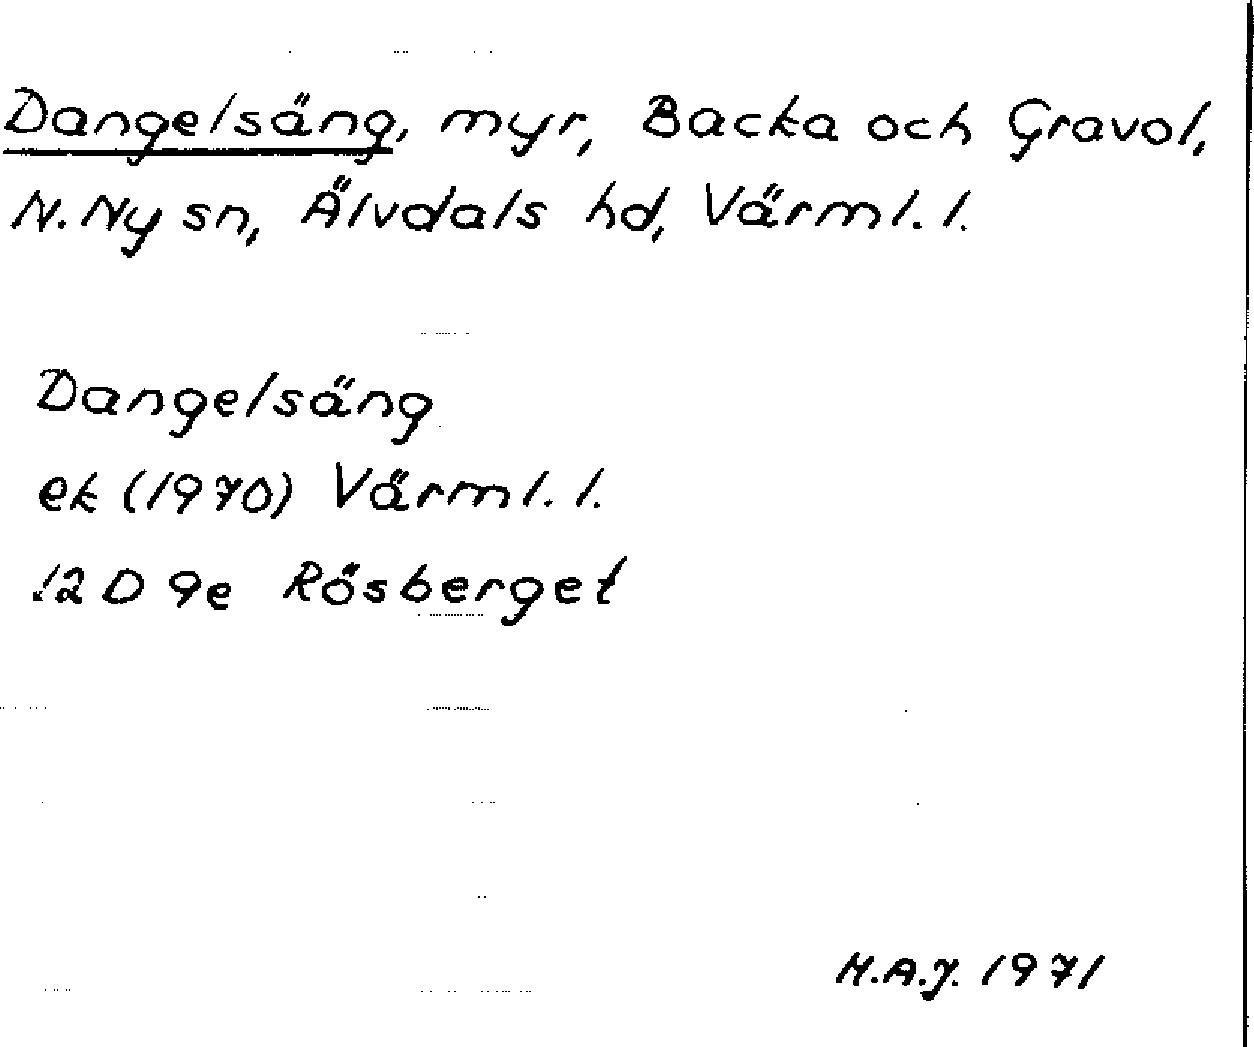 Dangelsäng, myr, Backa och Gravol,
N. Ny sn, Älvdals hd, Värml. l.
Dangelsäng
ek (1970) Värml. l.
12 D 9e Rösberget
H.A.J. 1971